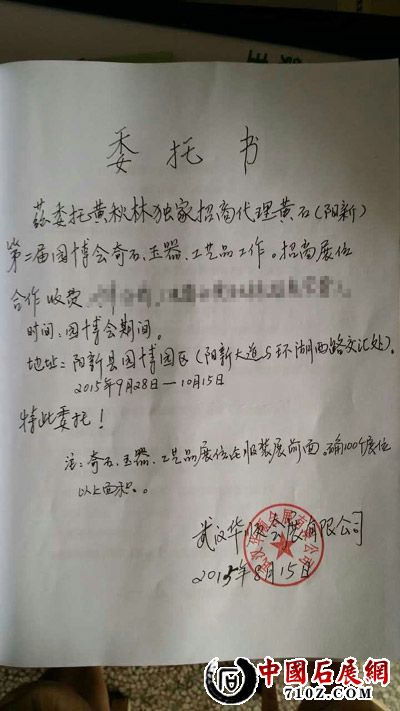 委托书
兹委托黄秋林独家招商代理黄石(阳新)
第二届园博会奇石、玉器、工艺品工作。招商展位
合作收费
时间:园博会期间。
地址:阳新县园博园区(阳新大道与环湖西路交汇处)。
2015年9月28日—10月15日
特此委托!
注:奇石、玉器、工艺品展位在服装展前面。确100个展位
以上面积。
武汉华 展有限公司
2015年8月15日
中國石展網
710Z.COM